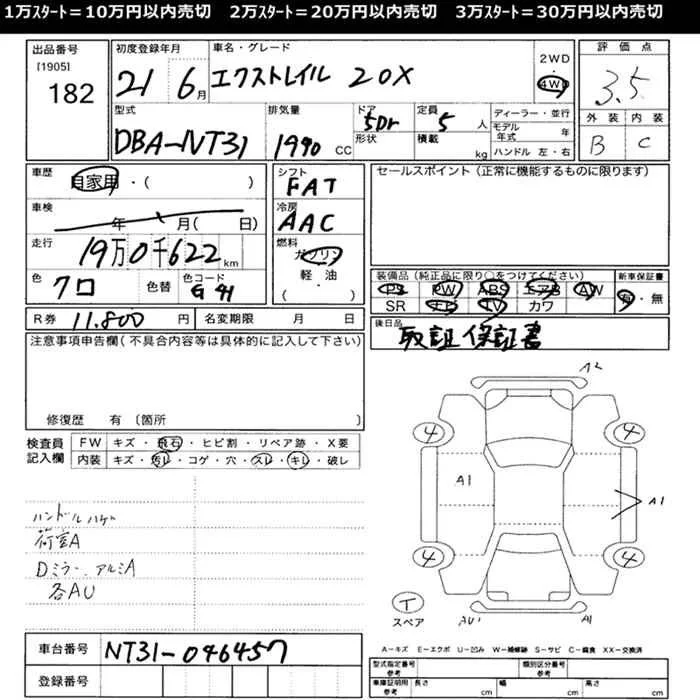 1万ｽﾀｰﾄ＝10万円以内売切　2万ｽﾀｰﾄ＝20万円以内売切　3万ｽﾀｰﾄ＝30万円以内売切
出品番号
[1905]
182
初度登録年月
21 6月
車名・グレード
エクストレイル 20X
2WD
4WD
評価点
3.5
外装 内装
B C
型式
DBA-NT31
排気量
1990 CC
ドア
5Dr
形状
定員
5 人
積載
kg
ディーラー・並行
モデル年式 年
ハンドル 左・右
車歴
自家用・( )
車検
年 月( 日)
走行
19万0千622km
色
クロ
色替
色コード
G41
シフト
FAT
冷房
AAC
燃料
ガソリン
軽・油
( ・ )
セールスポイント(正常に機能するものに限ります)
装備品(純正品に限り○をつけてください)
PS PW ABS エアB AW
SR ナビ TV カワ
新車保証書
有・無
R券 11.800 円
名変期限 月 日
後日品
取証 保証書
注意事項申告欄(不具合内容等は具体的に記入して下さい)
修復歴 有 〔箇所 〕
検査員記入欄
FW キズ・飛石・ヒビ割・リペア跡・X要
内装 キズ・汚レ・コゲ・穴・スレ・キレ・破レ
ハンドルハゲ
荷室A
Dミラー、アルミA
各AU
A2
4 4
A1 A1
4 4
T
スペア
AU' A1
A－キズ E－エクボ U－凹み W－補修跡 S－サビ C－腐食 XX－交換済
車台番号
NT31-046457
登録番号
型式指定番号
参考
類別区分番号
参考
車庫証明用
参考
長さ cm
幅 cm
高さ cm